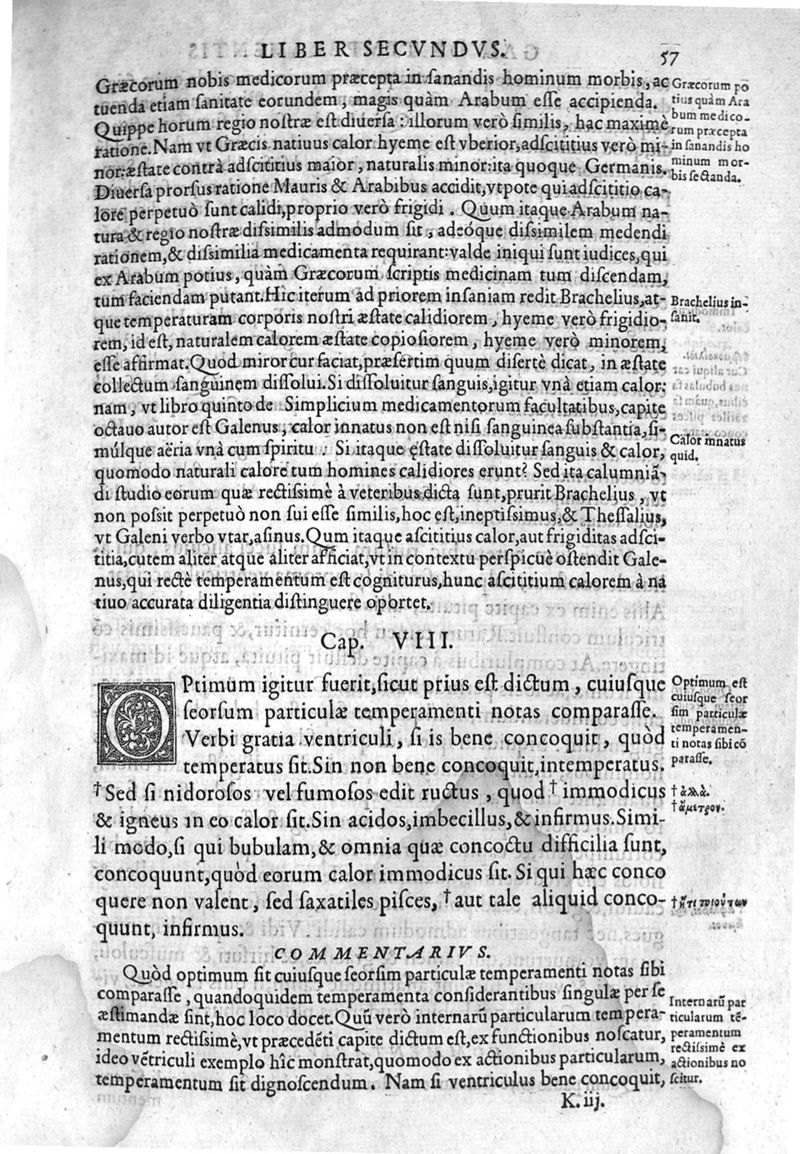 LIBER SECVNDVS.
57
Græcorum nobis medicorum præcepta in ſanandis hominum morbis, ac
tuenda etiam ſanitate eorundem, magis quàm Arabum eſſe accipienda.
Quippe horum regio noſtræ eſt diuerſa: illorum verò ſimilis, hac maximè
ratione. Nam vt Græcis natiuus calor hyeme eſt vberior, adſcititius verò mi-
nor: æſtate contrà adſcititius maior, naturalis minor: ita quoque Germanis.
Diuerſa prorſus ratione Mauris & Arabibus accidit, vtpote qui adſcititio ca-
lore perpetuò ſunt calidi, proprio verò frigidi. Quum itaque Arabum na-
tura & regio noſtræ diſsimilis admodum ſit, adeóque diſsimilem medendi
rationem, & diſsimilia medicamenta requirant: valde iniqui ſunt iudices, qui
ex Arabum potius, quàm Græcorum ſcriptis medicinam tum diſcendam,
tum faciendam putant. Hîc iterum ad priorem inſaniam redit Brachelius, at-
que temperaturam corporis noſtri æſtate calidiorem, hyeme verò frigidio-
rem, id eſt, naturalem calorem æſtate copioſiorem, hyeme verò minorem,
eſſe affirmat. Quod miror cur faciat, præſertim quum diſertè dicat, in æſtate
collectum ſanguinem diſſolui. Si diſſoluitur ſanguis, igitur vnà etiam calor:
nam, vt libro quinto de Simplicium medicamentorum facultatibus, capite
octauo autor eſt Galenus, calor innatus non eſt niſi ſanguinea ſubſtantia, ſi-
múlque aëria vnà cum ſpiritu. Si itaque ęſtate diſſoluitur ſanguis & calor,
quomodo naturali calore tum homines calidiores erunt? Sed ita calumniã-
di ſtudio eorum quæ rectiſsimè à veteribus dicta ſunt, prurit Brachelius, vt
non poſsit perpetuò non ſui eſſe ſimilis, hoc eſt, ineptiſsimus, & Theſſalius,
vt Galeni verbo vtar, aſinus. Qum itaque aſcititius calor, aut frigiditas adſci-
titia, cutem aliter atque aliter afficiat, vt in contextu perſpicuè oſtendit Gale-
nus, qui rectè temperamentum eſt cogniturus, hunc aſcititium calorem à na
tiuo accurata diligentia diſtinguere oportet.
Græcorum po
tius quàm Ara
bum medico-
rum præcepta
in ſanandis ho
minum mor-
bis ſectanda.
Brachelius in-
ſanit.
Calor innatus
quid.
Cap. VIII.
OPtimum igitur fuerit, ſicut prius eſt dictum, cuiuſque
ſeorſum particulæ temperamenti notas comparaſſe.
Verbi gratia ventriculi, ſi is bene concoquit, quòd
temperatus ſit. Sin non bene concoquit, intemperatus.
†Sed ſi nidoroſos vel fumoſos edit ructus, quod †immodicus
& igneus in eo calor ſit. Sin acidos, imbecillus, & infirmus. Simi-
li modo, ſi qui bubulam, & omnia quæ concoctu difficilia ſunt,
concoquunt, quòd eorum calor immodicus ſit. Si qui hæc conco
quere non valent, ſed ſaxatiles piſces, †aut tale aliquid conco-
quunt, infirmus.
Optimum eſt
cuiuſque ſeor
ſim particulæ
temperamen-
ti notas ſibi cõ
paraſſe.
†ἀλλὰ.
†ἄμετρον.
†ἤ τι τοιοῦτων
COMMENTARIVS.
Quòd optimum ſit cuiuſque ſeorſim particulæ temperamenti notas ſibi
comparaſſe, quandoquidem temperamenta conſiderantibus ſingulæ per ſe
æſtimandæ ſint, hoc loco docet. Quũ verò internarũ particularum tempera-
mentum rectiſsimè, vt præcedẽti capite dictum eſt, ex functionibus noſcatur,
ideo vẽtriculi exemplo hîc monſtrat, quomodo ex actionibus particularum,
temperamentum ſit dignoſcendum. Nam ſi ventriculus bene concoquit,
Internarũ par
ticularum tẽ-
peramentum
rectiſsimè ex
actionibus no
ſcitur.
K. iij.